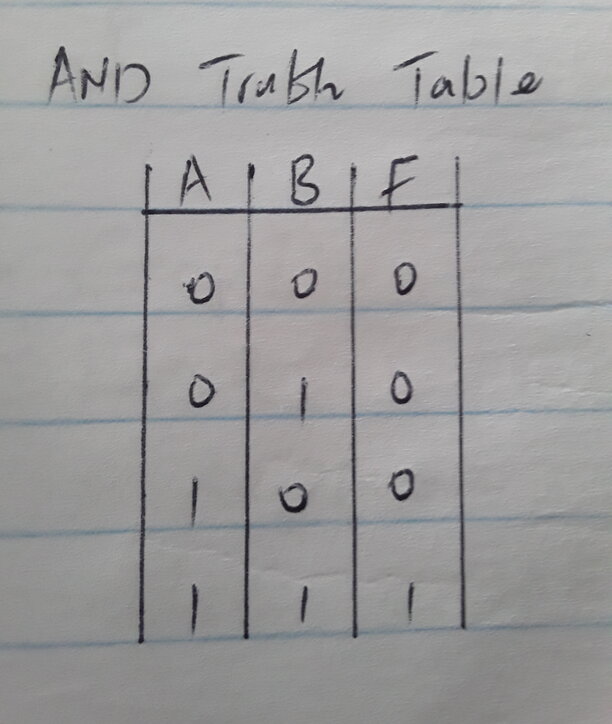 AND Truth Table
A B F
0 0 0
0 1 0
1 0 0
1 1 1